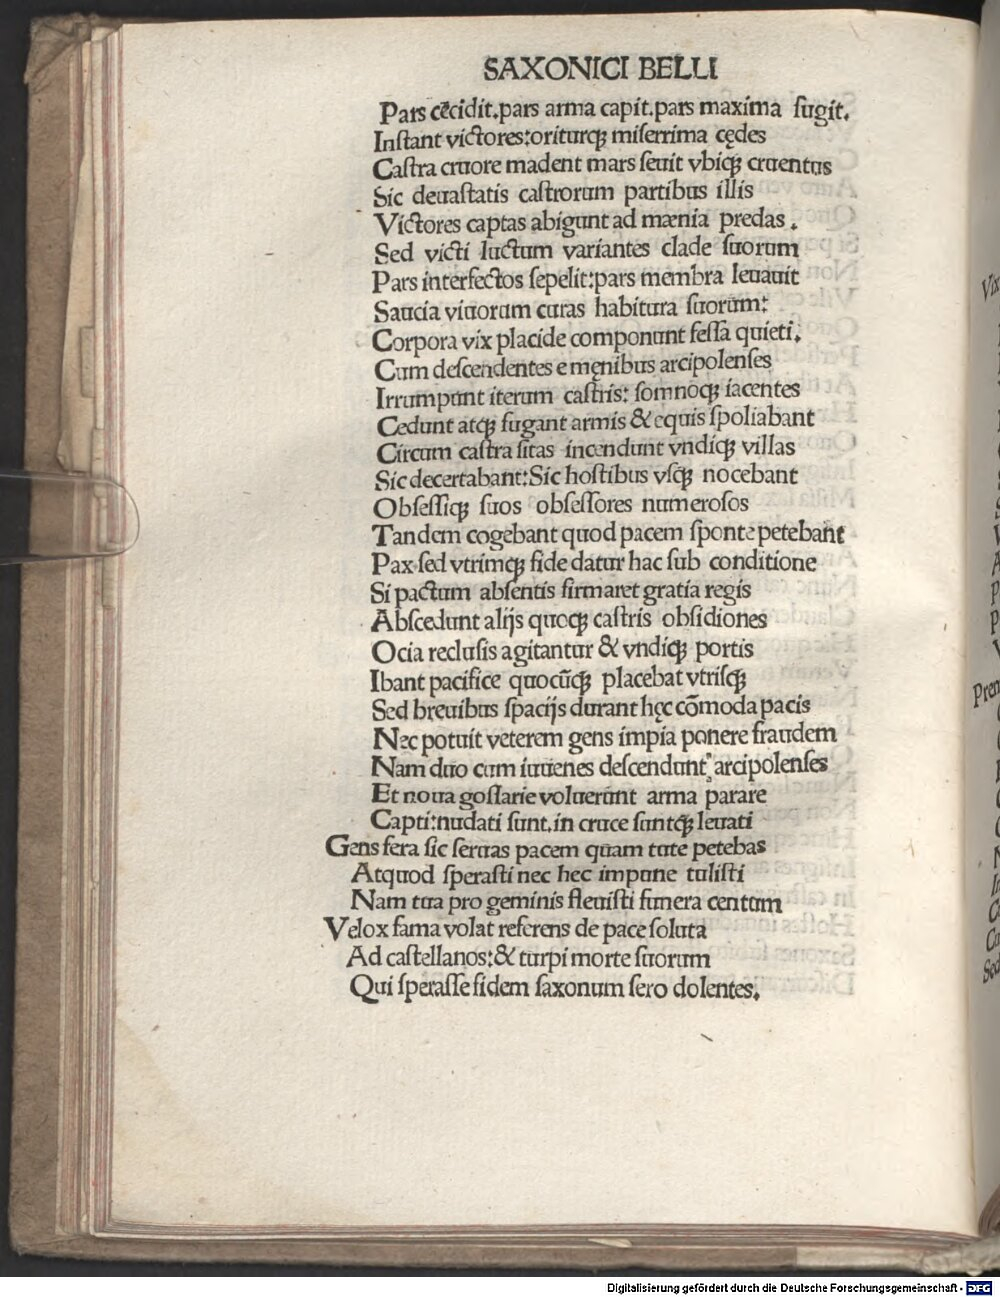 SAXONICI BELLI
Pars cēcidit.pars arma capit.pars maxima fugit.
Inſtant victores:oriturqꝫ miſerrima cędes
Caſtra cruore madent mars ſeuit vbiqꝫ cruentus
Sic deuaſtatis caſtrorum partibus illis
Victores captas abigunt ad mænia predas .
Sed victi luctum variantes clade ſuorum
Pars interfectos ſepelit:pars membra leuauit
Saucia viuorum curas habitura ſuorum:
Corpora vix placide componunt feſſa quieti.
Cum deſcendentes e męnibus arcipolenſes
Irrumpunt iterum caſtris: ſomnoqꝫ iacentes
Cedunt atqꝫ fugant armis & equis ſpoliabant
Circum caſtra ſitas incendunt vndiqꝫ villas
Sic decertabant:Sic hoſtibus vſqꝫ nocebant
Obſeſſiqꝫ ſuos obſeſſores numeroſos
Tandem cogebant quod pacem ſponte petebant
Pax ſed vtrimqꝫ fide datur hac ſub conditione
Si pactum abſentis firmaret gratia regis
Abſcedunt alijs quoqꝫ caſtris obſidiones
Ocia recluſis agitantur & vndiqꝫ portis
Ibant pacifice quocūqꝫ placebat vtriſqꝫ
Sed breuibus ſpacijs durant hęc cōmoda pacis
Nec potuit veterem gens impia ponere fraudem
Nam duo cum iuuenes deſcendunt arcipolenſes
Et noua goſlarie voluerunt arma parare
Capti:nudati ſunt.in cruce ſuntqꝫ leuati
Gens fera ſic ſeruas pacem quam tute petebas
Atquod ſperaſti nec hec impune tuliſti
Nam tua pro geminis fleuiſti funera centum
Velox fama volat referens de pace ſoluta
Ad caſtellanos:& turpi morte ſuorum
Qui ſperaſſe fidem ſaxonum ſero dolentes.
Vix
Prem
Digitalisierung gefördert durch die Deutsche Forschungsgemeinschaft - DFG